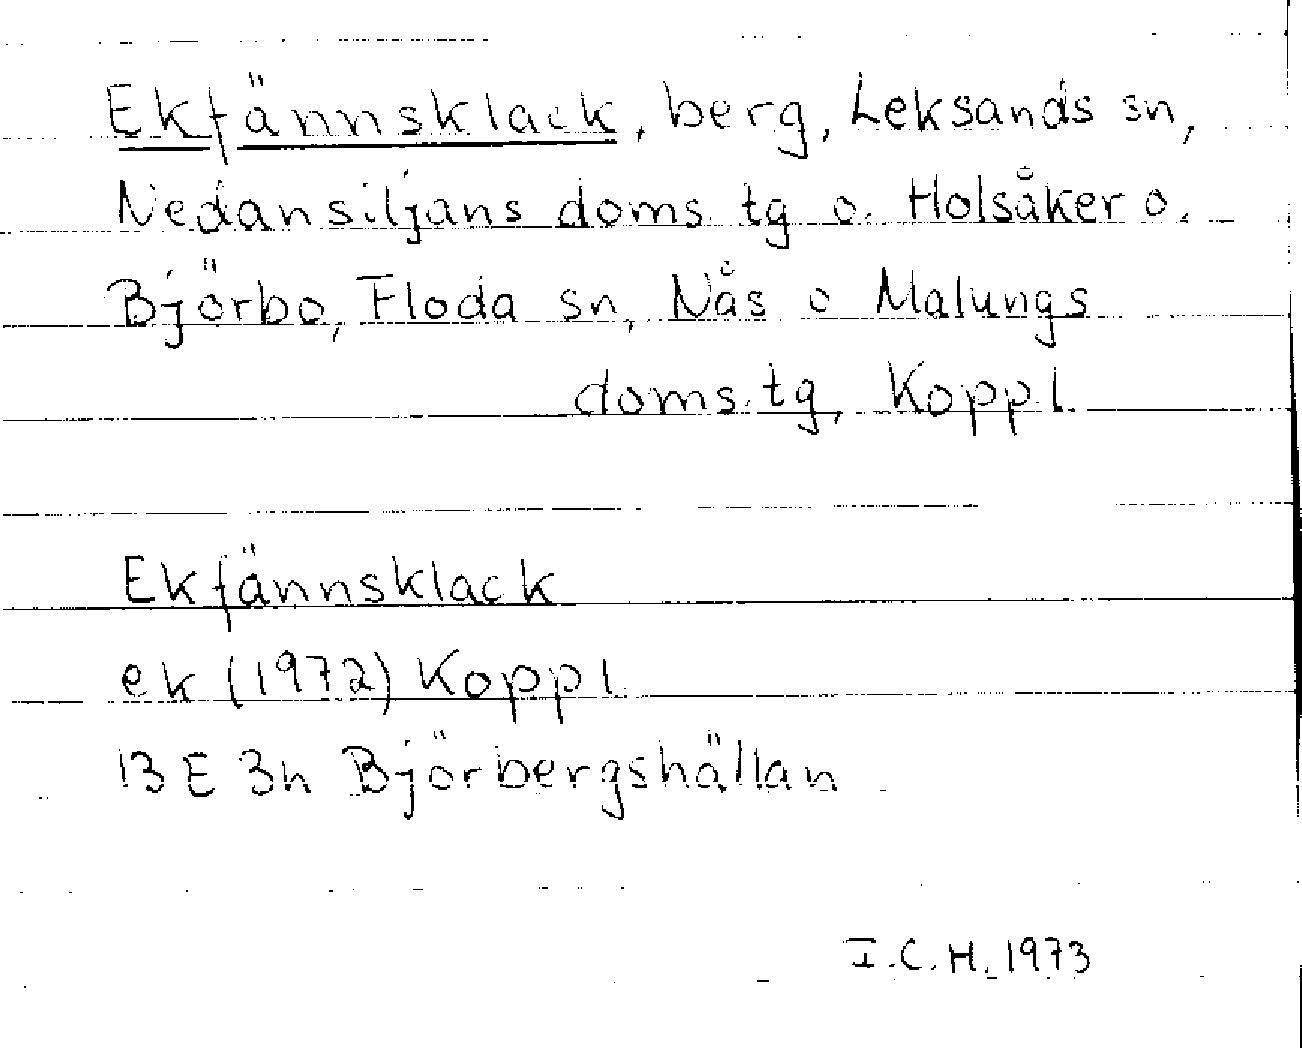 Ekfännsklack, berg, Leksands sn,
Nedansiljans doms. tg o. Holsåker o.
Björbo, Floda sn, Nås o Malungs
doms. tg, Koppl.
Ekfännsklack
ek (1972) Koppl.
13 E 3h Björbergshällan
I.C.H. 1973